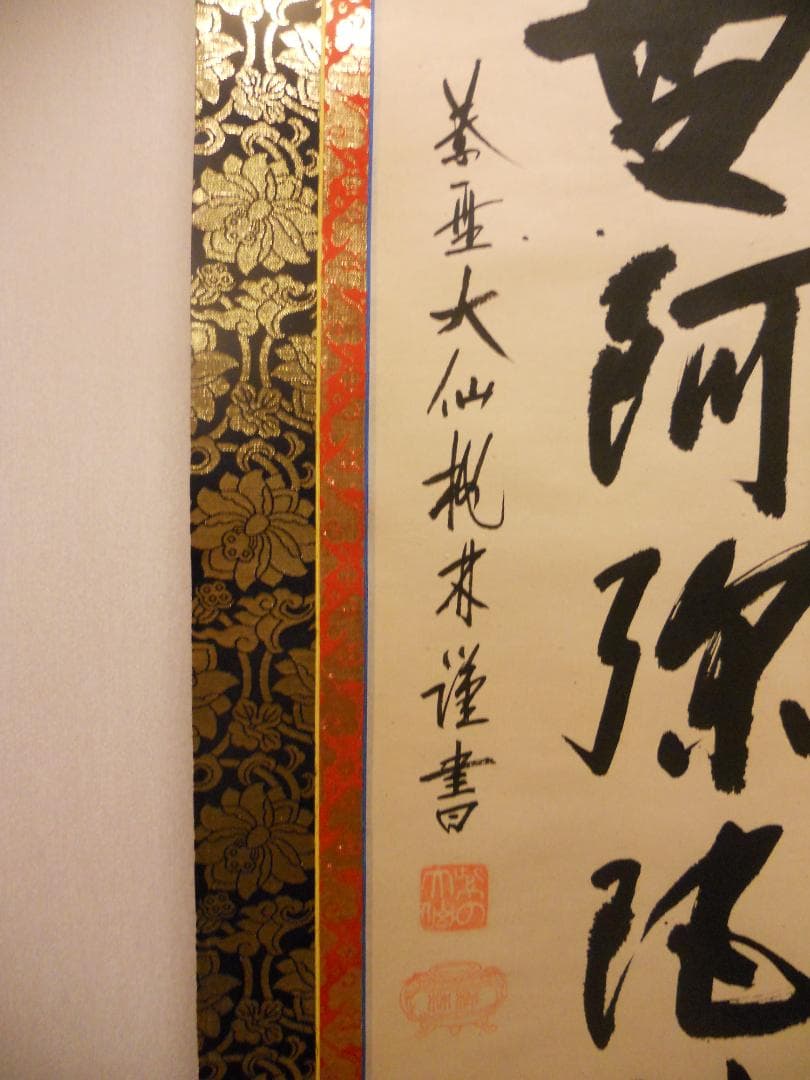 無阿弥陀
紫埜大仙桃林謹書